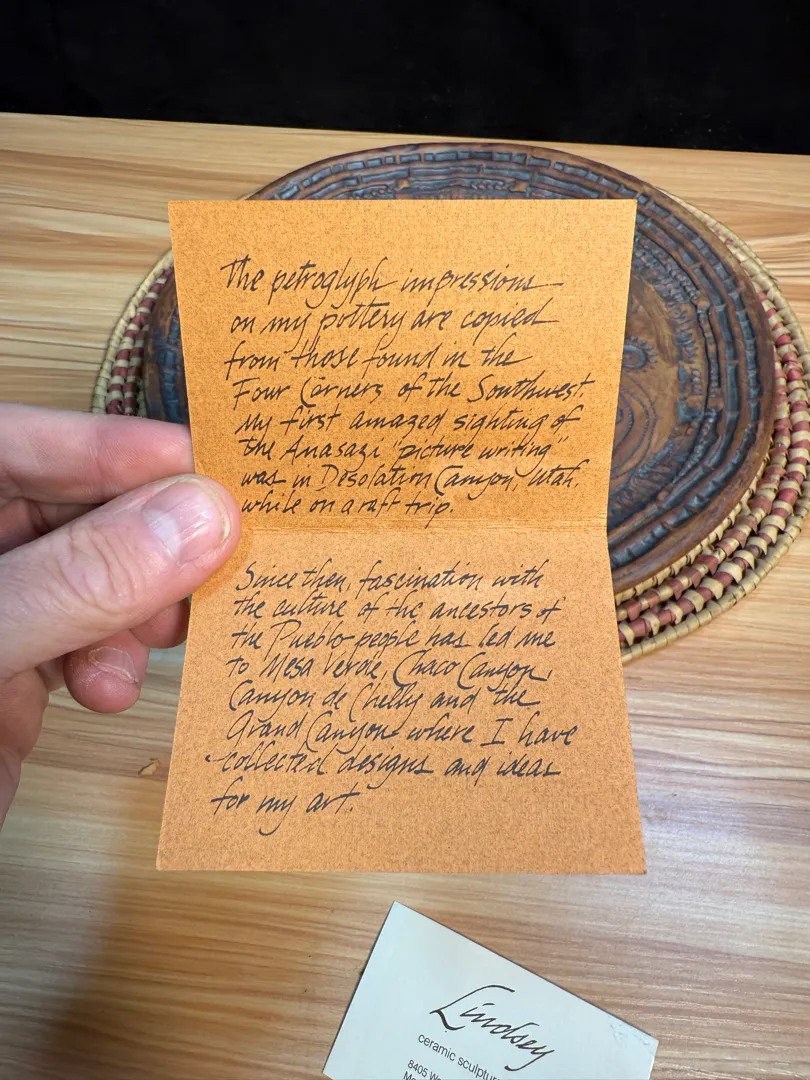 The petroglyph impressions
on my pottery are copied
from those found in the
Four Corners of the Southwest.
My first amazed sighting of
the Anasazi "picture writing"
was in Desolation Canyon, Utah,
while on a raft trip.
Since then, fascination with
the culture of the ancestors of
the Pueblo people has led me
to Mesa Verde, Chaco Canyon,
Canyon de Chelly and the
Grand Canyon where I have
collected designs and ideas
for my art.
Lindsey
ceramic
8405